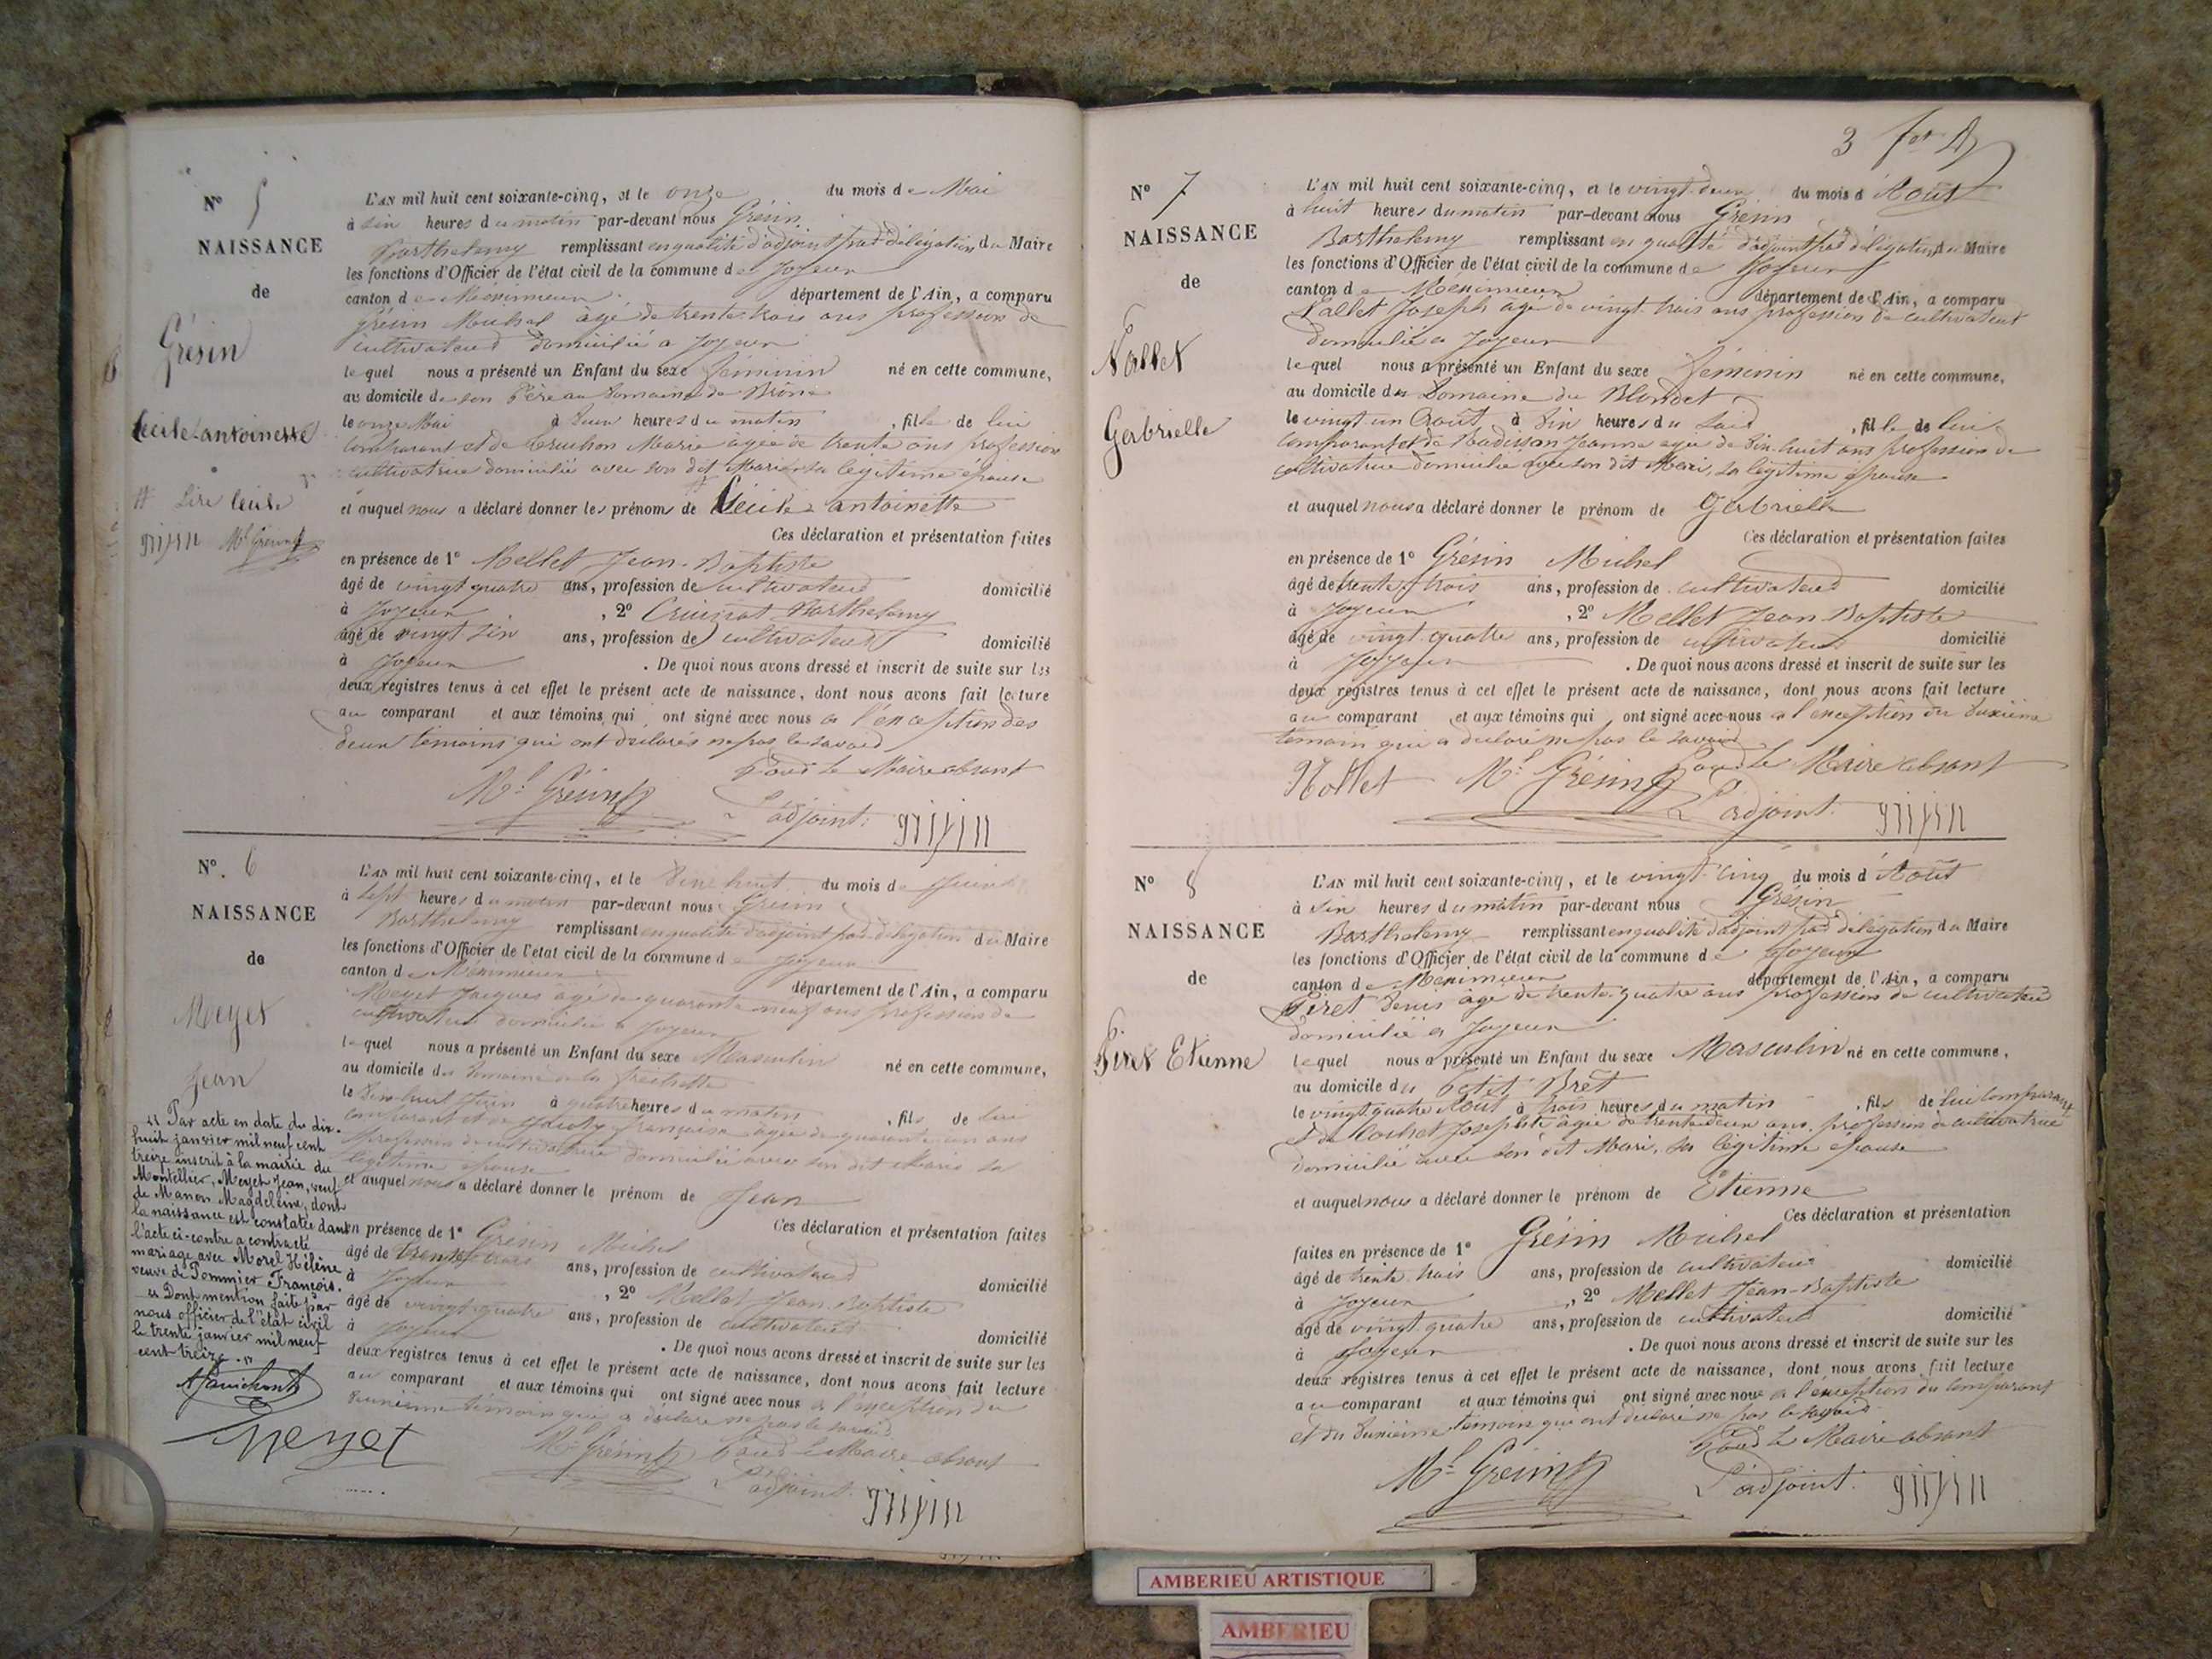 N° 5
NAISSANCE
de
Grésin
Cécile antoinette
# Lire Cécile
Ml Grésin
L'AN mil huit cent soixante-cinq, et le onze du mois de Mai
à six heures du matin par-devant nous Grésin
Barthelemy remplissant en qualité d'adjoint par délégation du Maire
les fonctions d'Officier de l'état civil de la commune de Joyeux
canton de Méximieux département de l'Ain, a comparu
Grésin Michel âgé de trente trois ans profession de
cultivateur domicilié à Joyeux
lequel nous a présenté un Enfant du sexe féminin né en cette commune,
au domicile de son Père au Domaine de
le onze Mai à deux heures du matin , fille de lui
comparant et de Marie âgée de trente ans profession
cultivatrice domicilié avec son dit Mari sa légitime épouse
et auquel nous a déclaré donner les prénoms de Cécile antoinette
Ces déclaration et présentation faites
en présence de 1° Mellet Jean-Baptiste
âgé de vingt quatre ans, profession de cultivateur domicilié
à Joyeux , 2° Barthelemy
âgé de vingt six ans, profession de cultivateur domicilié
à Joyeux . De quoi nous avons dressé et inscrit de suite sur les
deux registres tenus à cet effet le présent acte de naissance, dont nous avons fait lecture
au comparant et aux témoins qui ont signé avec nous à l'exception des
deux témoins qui ont déclarés ne pas le savoir
Pour le Maire absent
Ml Grésin L'adjoint:
N°. 6
NAISSANCE
de
Meyet
Jean
L'AN mil huit cent soixante-cinq, et le dix huit du mois de Juin
à sept heures du matin par-devant nous Grésin
Barthelemy remplissant en qualité d'adjoint par délégation du Maire
les fonctions d'Officier de l'état civil de la commune de Joyeux
canton de Méximieux département de l'Ain, a comparu
Meyet Jacques âgé de quarante neuf ans profession de
cultivateur domicilié à Joyeux
lequel nous a présenté un Enfant du sexe Masculin né en cette commune,
au domicile du Domaine de la
le dix-huit Juin à quatre heures du matin , fils de lui
comparant et de françoise âgée de quarante un ans
profession de cultivatrice domicilié avec son dit Mari sa
légitime épouse
et auquel nous a déclaré donner le prénom de Jean
Ces déclaration et présentation faites
en présence de 1° Grésin Michel
âgé de trente trois ans, profession de cultivateur domicilié
à Joyeux , 2° Mellet Jean-Baptiste
âgé de vingt quatre ans, profession de cultivateur domicilié
à Joyeux . De quoi nous avons dressé et inscrit de suite sur les
deux registres tenus à cet effet le présent acte de naissance, dont nous avons fait lecture
au comparant et aux témoins qui ont signé avec nous à l'exception du
deuxième témoin qui a déclaré ne pas le savoir
Ml Grésin Pour le Maire absent
L'adjoint.
« Par acte en date du dix-
huit janvier mil neuf cent
treize inscrit à la mairie du
Montellier, Meyet Jean, veuf
de Manon Magdeleine, dont
la naissance est constatée dans
l'acte ci-contre a contracté
mariage avec Morel Hélène
veuve de Pommier François.
« Dont mention faite par
nous officier de l'état civil
le trente janvier mil neuf
cent treize. »
Meyet
3
N° 7
NAISSANCE
de
Nallet
Gabrielle
L'AN mil huit cent soixante-cinq, et le vingt-deux du mois d'Août
à huit heures du matin par-devant nous Grésin
Barthelemy remplissant en qualité d'adjoint par délégation du Maire
les fonctions d'Officier de l'état civil de la commune de Joyeux
canton de Méximieux département de l'Ain, a comparu
Nallet Joseph âgé de vingt trois ans profession de cultivateur
domicilié à Joyeux
lequel nous a présenté un Enfant du sexe féminin né en cette commune,
au domicile du Domaine du Blondet
le vingt un Août à six heures du soir , fille de lui
comparant et de Jeanne âgée de dix-huit ans profession de
cultivatrice domicilié avec son dit Mari, sa légitime épouse
et auquel nous a déclaré donner le prénom de Gabrielle
Ces déclaration et présentation faites
en présence de 1° Grésin Michel
âgé de trente trois ans, profession de cultivateur domicilié
à Joyeux , 2° Mellet Jean-Baptiste
âgé de vingt quatre ans, profession de cultivateur domicilié
à Joyeux . De quoi nous avons dressé et inscrit de suite sur les
deux registres tenus à cet effet le présent acte de naissance, dont nous avons fait lecture
au comparant et aux témoins qui ont signé avec nous à l'exception du deuxième
témoin qui a déclaré ne pas le savoir
Pour le Maire absent
Nallet Ml Grésin L'adjoint.
N° 8
NAISSANCE
de
Piret Etienne
L'AN mil huit cent soixante-cinq, et le vingt-cinq du mois d'Août
à six heures du matin par-devant nous Grésin
Barthelemy remplissant en qualité d'adjoint par délégation du Maire
les fonctions d'Officier de l'état civil de la commune de Joyeux
canton de Méximieux département de l'Ain, a comparu
Piret Denis âgé de trente quatre ans profession de cultivateur
domicilié à Joyeux
lequel nous a présenté un Enfant du sexe Masculin né en cette commune,
au domicile du Petit Bret
le vingt quatre Août à trois heures du matin , fils de lui comparant
et de Josephte âgée de trente deux ans, profession de cultivatrice
domicilié avec son dit Mari, sa légitime épouse
et auquel nous a déclaré donner le prénom de Etienne
Ces déclaration et présentation
faites en présence de 1° Grésin Michel
âgé de trente trois ans, profession de cultivateur domicilié
à Joyeux , 2° Mellet Jean-Baptiste
âgé de vingt quatre ans, profession de cultivateur domicilié
à Joyeux . De quoi nous avons dressé et inscrit de suite sur les
deux registres tenus à cet effet le présent acte de naissance, dont nous avons fait lecture
au comparant et aux témoins qui ont signé avec nous à l'exception du comparant
et du deuxième témoin qui ont déclaré ne pas le savoir
Pour le Maire absent
Ml Grésin L'adjoint.
AMBERIEU ARTISTIQUE
AMBERIEU